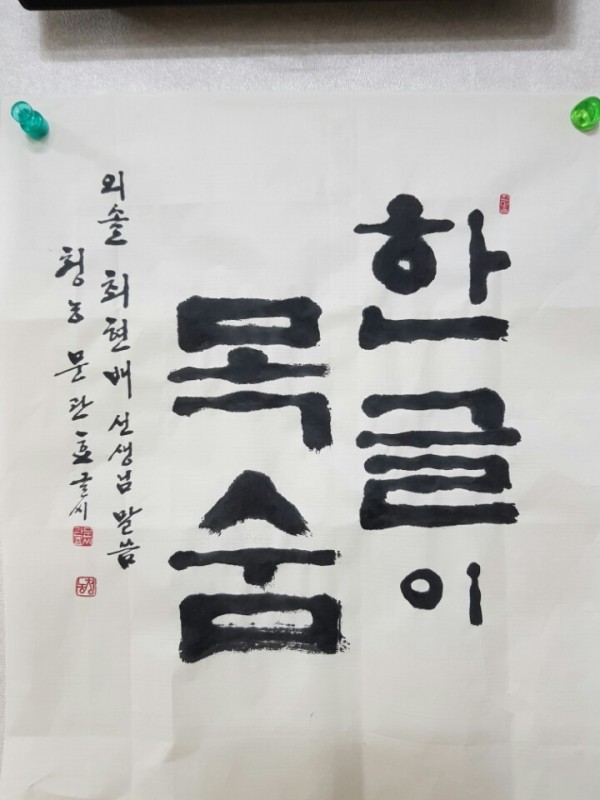 한글이
목숨
외솔 최현배 선생님 말씀
청농 문관효 글씨